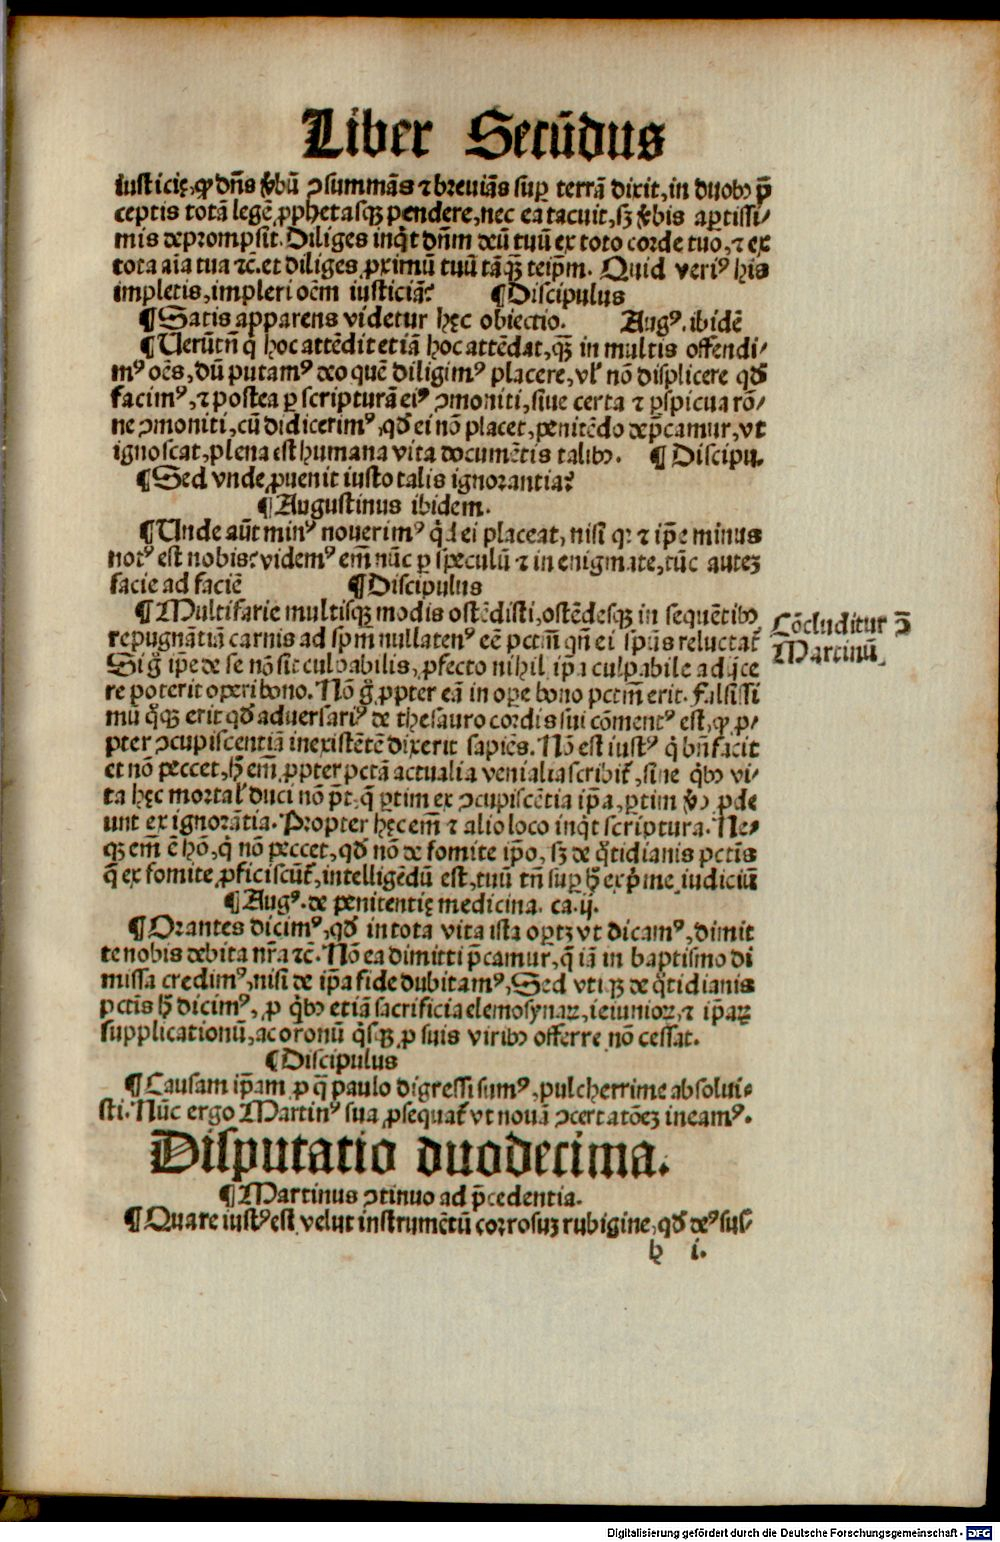 Liber Secūdus
iusticię, ꝙ dn̄s v̓bū ↄsummās ⁊ breviās suꝑ terrā dixit, in duobꝰ p̄
ceptis totā legē, ꝓphetasqꝫ pendere, nec ea tacuit, sꝫ v̓bis aptissi⸗
mis depromp̄sit. Diliges inqͥt dn̄m deū tuū ex toto corde tuo, ⁊ ex
tota aīa tua ⁊c̄. et diliges ꝓximū tuū tāqꝫ̄ teip̄m. Quid veriꝰ his
impletis, impleri oēm iusticiā? ¶Discipulus
¶Satis apparens videtur hęc obiectio. Augꝰ. ibidē
¶Verūtn̄ q̄ hoc attēdit etiā hoc attēdat, qꝫ̄ in multis offendi⸗
mꝰ oēs, dū putamꝰ deo quē diligimꝰ placere, vl̓ nō displicere qd̓
facimꝰ, ⁊ postea ꝑ scripturā eiꝰ ↄmoniti, siue certa ⁊ ꝑspicua rō⸗
ne ↄmoniti, cū didicerimꝰ, qd̓ ei nō placet, penitēdo dep̄camur, vt
ignoscat, plena est humana vita documētis talibꝰ. ¶Discipu.
¶Sed vnde ꝓuenit iusto talis ignorantia?
¶Augustinus ibidem.
¶Unde aūt minꝰ nouerimꝰ qͥd ei placeat, nisi qꝛ ⁊ ip̄e minus
notꝰ est nobis? videmꝰ em̄ nūc ꝑ speculū ⁊ in enigmate, tūc autez
facie ad faciē ¶Discipulus
¶Multifarie multisqꝫ modis ostēdisti, ostēdesqꝫ in sequētibꝰ
repugnātiā carnis ad sp̄m nullatenꝰ eē pctm̄ qn̄ ei sp̄us reluctat᷑
Si g̊ ip̄e de se nō sit culpabilis, ꝓfecto nihil ip̄a culpabile adijce
re poterit operi bono. Nō g̊ ꝓpter eā in ope bono pctm̄ erit. Falsissi
mū qͥqꝫ erit qd̓ adversariꝰ de thesauro cordis sui cōmentꝰ est, ꝙ ꝓ⸗
pter ↄcupiscentiā inexistētē dixerit sapiēs. Nō est iustꝰ qͥ bn̄ facit
et nō peccet, h̄ em̄ ꝓpter pctā actualia venialia scribit᷑, sine qͥbꝰ vi⸗
ta hęc mortal̓ duci nō pt̄, q̄ ꝑtim ex ↄcupiscētia ip̄a, ꝑtim v̓o ꝓde
unt ex ignorātia. Propter hęc em̄ ⁊ alio loco inqͥt scriptura. Ne⸗
qꝫ em̄ ē hō, qͥ nō peccet, qd̓ nō de fomite ip̄o, sꝫ de qͦtidianis pctīs
q̄ ex fomite ꝓficiscūt᷑, intelligēdū est, tuū tn̄ suꝑ h̄ exp̄me iudiciū
¶Augꝰ. de penitentię medicina. ca. ij.
¶Orantes dicimꝰ, qd̓ in tota vita ista optꝫ vt dicamꝰ, dimit
te nobis debita nr̄a ⁊c̄. Nō ea dimitti p̄camur, q̄ iā in baptismo di
missa credimꝰ, nisi de ip̄a fide dubitamꝰ, Sed vtiqꝫ de qͦtidianis
pctīs h̄ dicimꝰ, ꝓ qͥbꝰ etiā sacrificia elemosynaꝝ, ieiunioꝝ, ⁊ ip̄aꝝ
supplicationū, ac oronū qͥsqꝫ ꝓ suis viribꝰ offerre nō cessat.
¶Discipulus
¶Causam ip̄am ꝓ q̄ paulo digressi sumꝰ, pulcherrime absolui⸗
sti. Nūc ergo Martinꝰ sua ꝓsequat᷑ vt nouā ↄcertatōez ineamꝰ.
Disputatio duodecima.
¶Martinus ↄtinuo ad p̄cedentia.
¶Quare iustꝰ est velut instrumētū corrosuz rubigine, qd̓ deꝰ sus⸗
h i.
Cōcluditur ↄ̄
Martinū
Digitalisierung gefördert durch die Deutsche Forschungsgemeinschaft - DFG